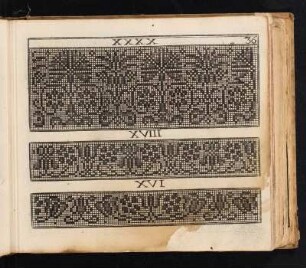 XXXX
XVIII
XVI